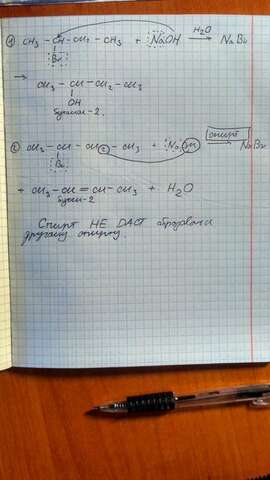 ① CH₃ – CH – CH₂ – CH₃ + NaOH H₂O → NaBr
Br
→ CH₃ – CH – CH₂ – CH₃
OH
бутанол-2.
② CH₃ – CH – CH₂ – CH₃ + NaOH спирт → NaBr
Br
+ CH₃ – CH = CH – CH₃ + H₂O
бутен-2.
Спирт НЕ ДАСТ
другому спирту.